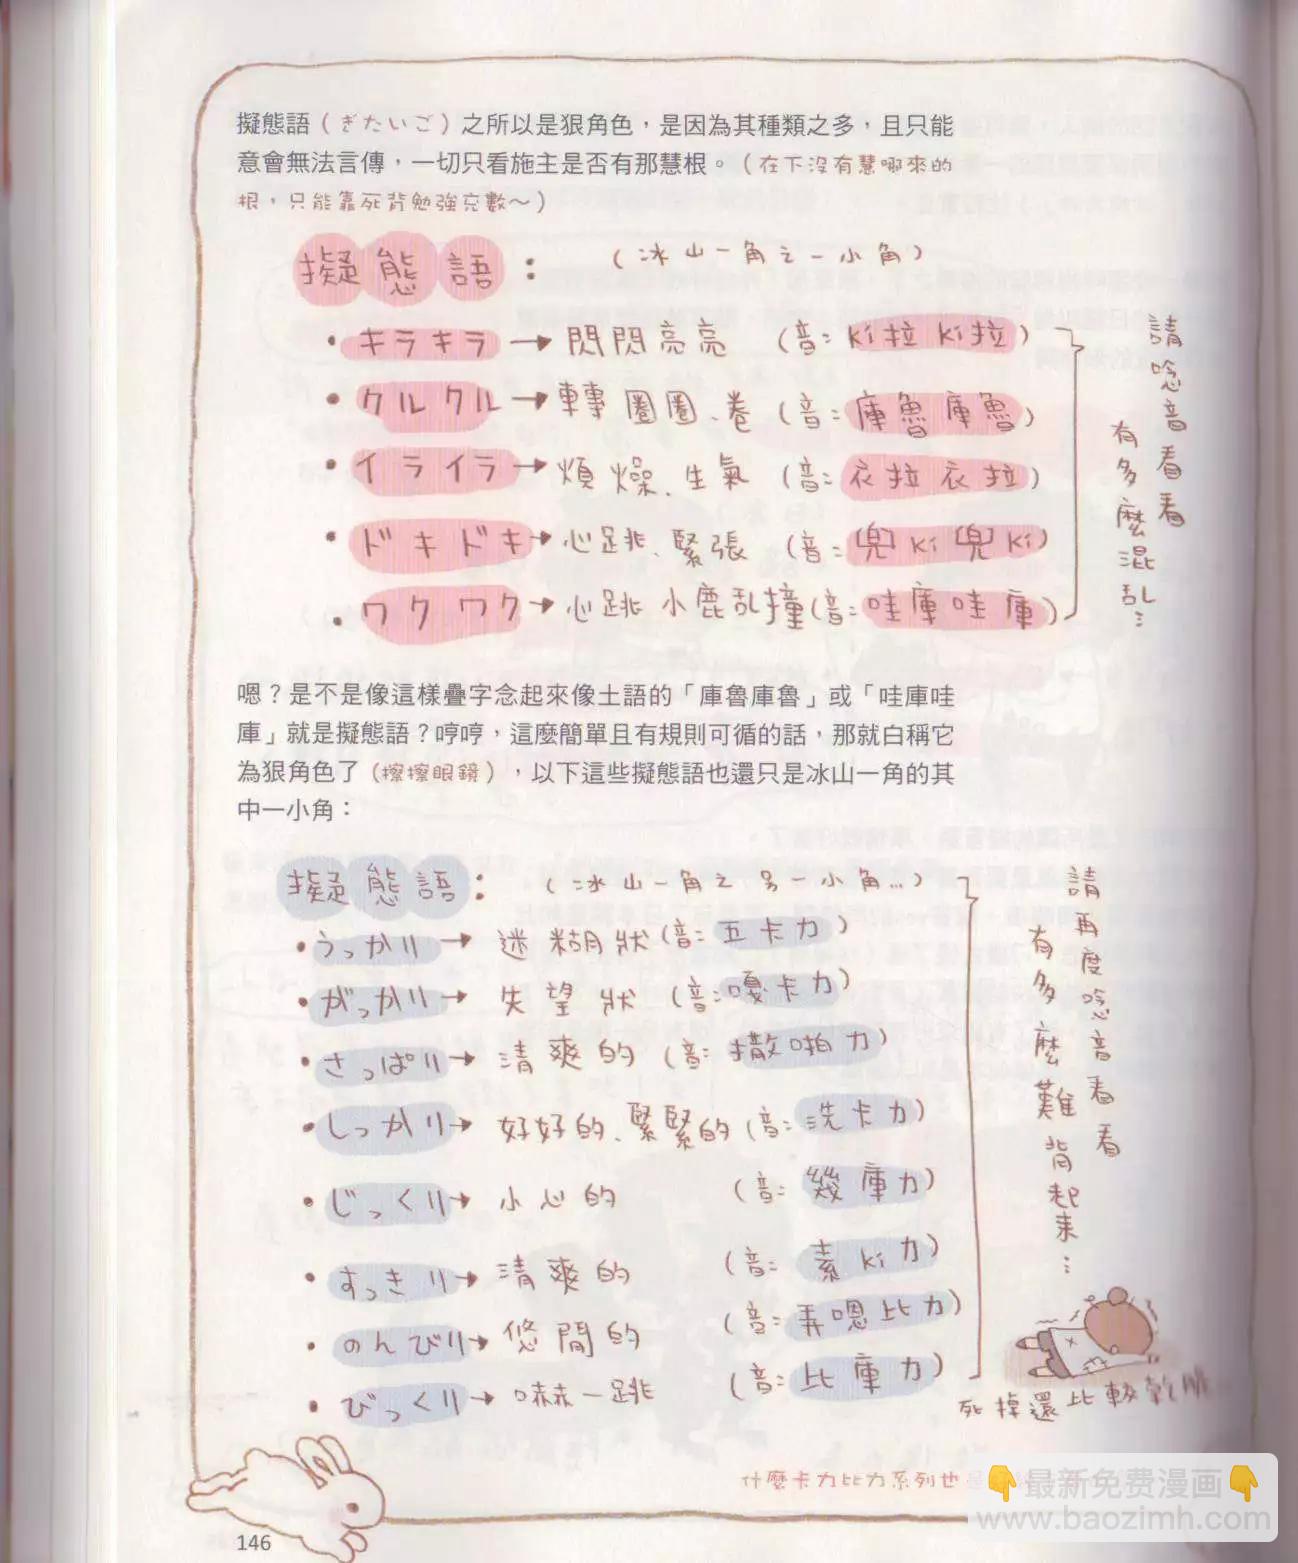 擬態語（ぎたいご）之所以是狠角色，是因為其種類之多，且只能
意會無法言傳，一切只看施主是否有那慧根。（在下沒有慧哪來的
根，只能靠死背勉強充數～）
擬態語：（冰山一角之一小角）
・キラキラ→閃閃亮亮（音：ki拉ki拉）
・クルクル→轉圈圈、卷（音：庫魯庫魯）
・イライラ→煩燥、生氣（音：衣拉衣拉）
・ドキドキ→心跳、緊張（音：兜ki兜ki）
・ワクワク→心跳小鹿亂撞（音：哇庫哇庫）
請唸音看看
有多麼混乱…
嗯？是不是像這樣疊字念起來像土語的「庫魯庫魯」或「哇庫哇
庫」就是擬態語？哼哼，這麼簡單且有規則可循的話，那就白稱它
為狠角色了（擦擦眼鏡），以下這些擬態語也還只是冰山一角的其
中一小角：
擬態語：（冰山一角之另一小角…）
・うっかり→迷糊狀（音：五卡力）
・がっかり→失望狀（音：嘎卡力）
・さっぱり→清爽的（音：撒啪力）
・しっかり→好好的、緊緊的（音：洗卡力）
・じっくり→小心的（音：幾庫力）
・すっきり→清爽的（音：素ki力）
・のんびり→悠閒的（音：弄嗯比力）
・びっくり→嚇一跳（音：比庫力）
請再度唸音看看
有多麼難背起來…
死掉還比較乾脆
什麼卡力比力系列也
👇最新免费漫画👇
www.baozimh.com
146